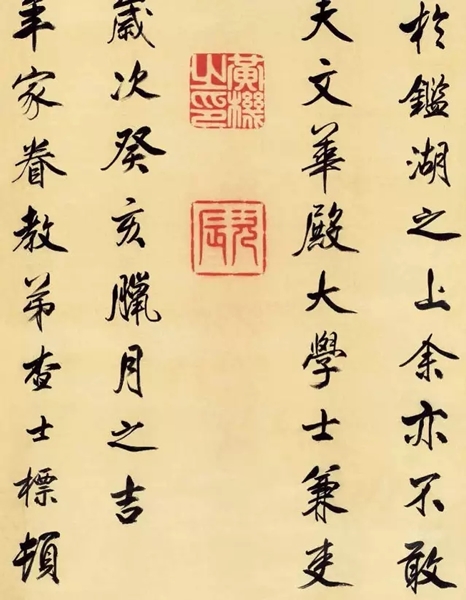 於鑑湖之上余亦不敢
夫文華殿大學士兼吏
黃機
之印
歲次癸亥臘月之吉
年家眷教弟查士標頓